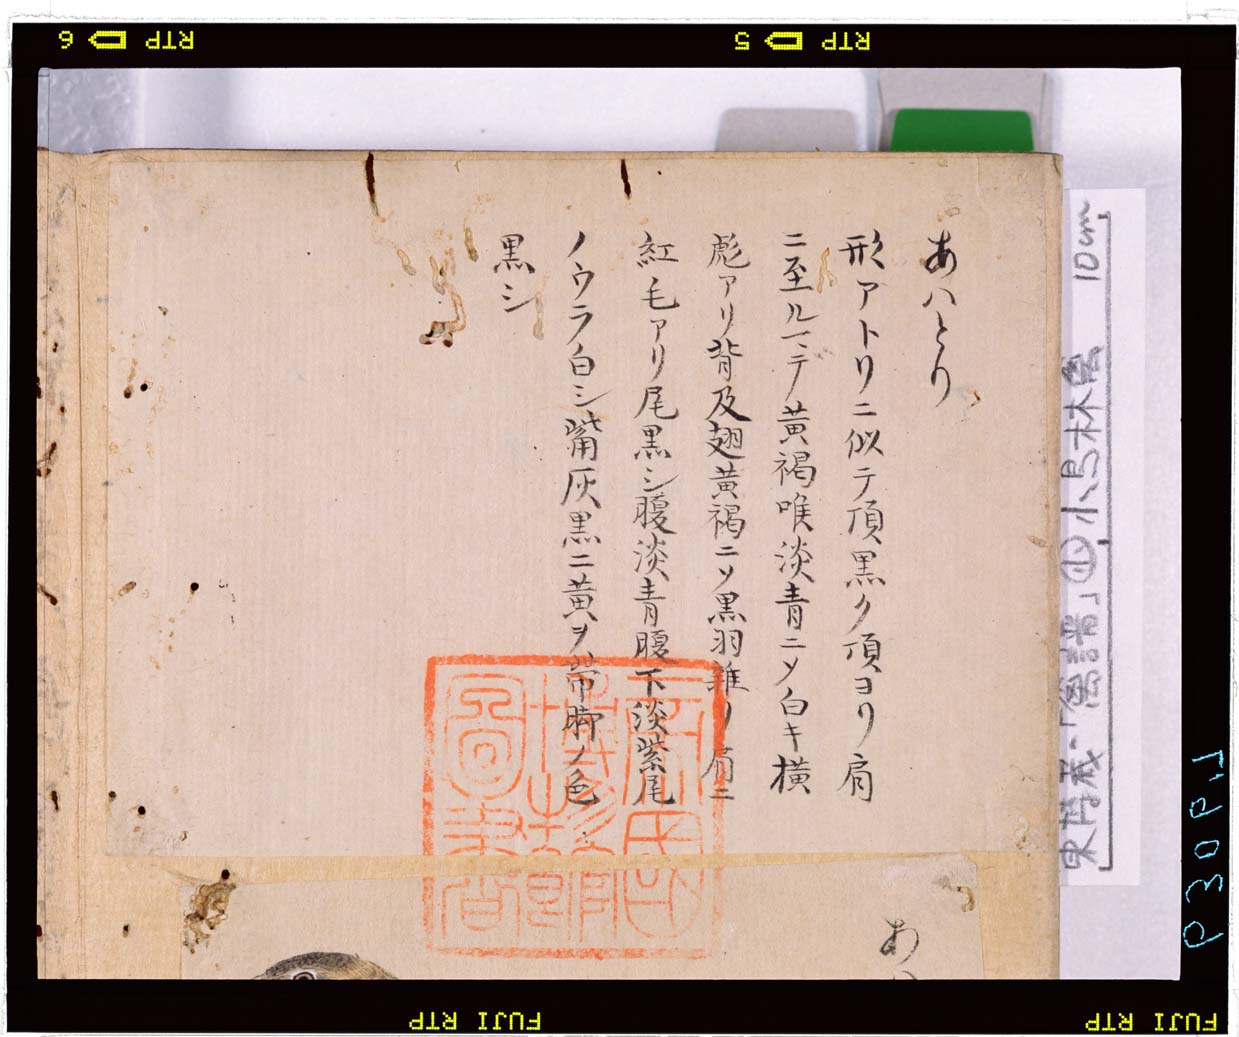 あハとり
形アトリニ似テ頂黒ク頂ヨリ肩
ニ至ルマテ黄褐喉淡青ニメ白キ横
彪アリ背及翅黄褐ニソ黒羽雑リ肩ニ
紅毛アリ尾黒シ腹淡青腹下淡紫尾
ノウラ白シ嘴灰黒ニ黄ヲ帯脚ノ色
黒シ
圖書
あ
東博蔵・「鳥譜」㊤小鳥林禽 10cm
RTP 5
RTP 6
FUJI RTP
FUJI RTP